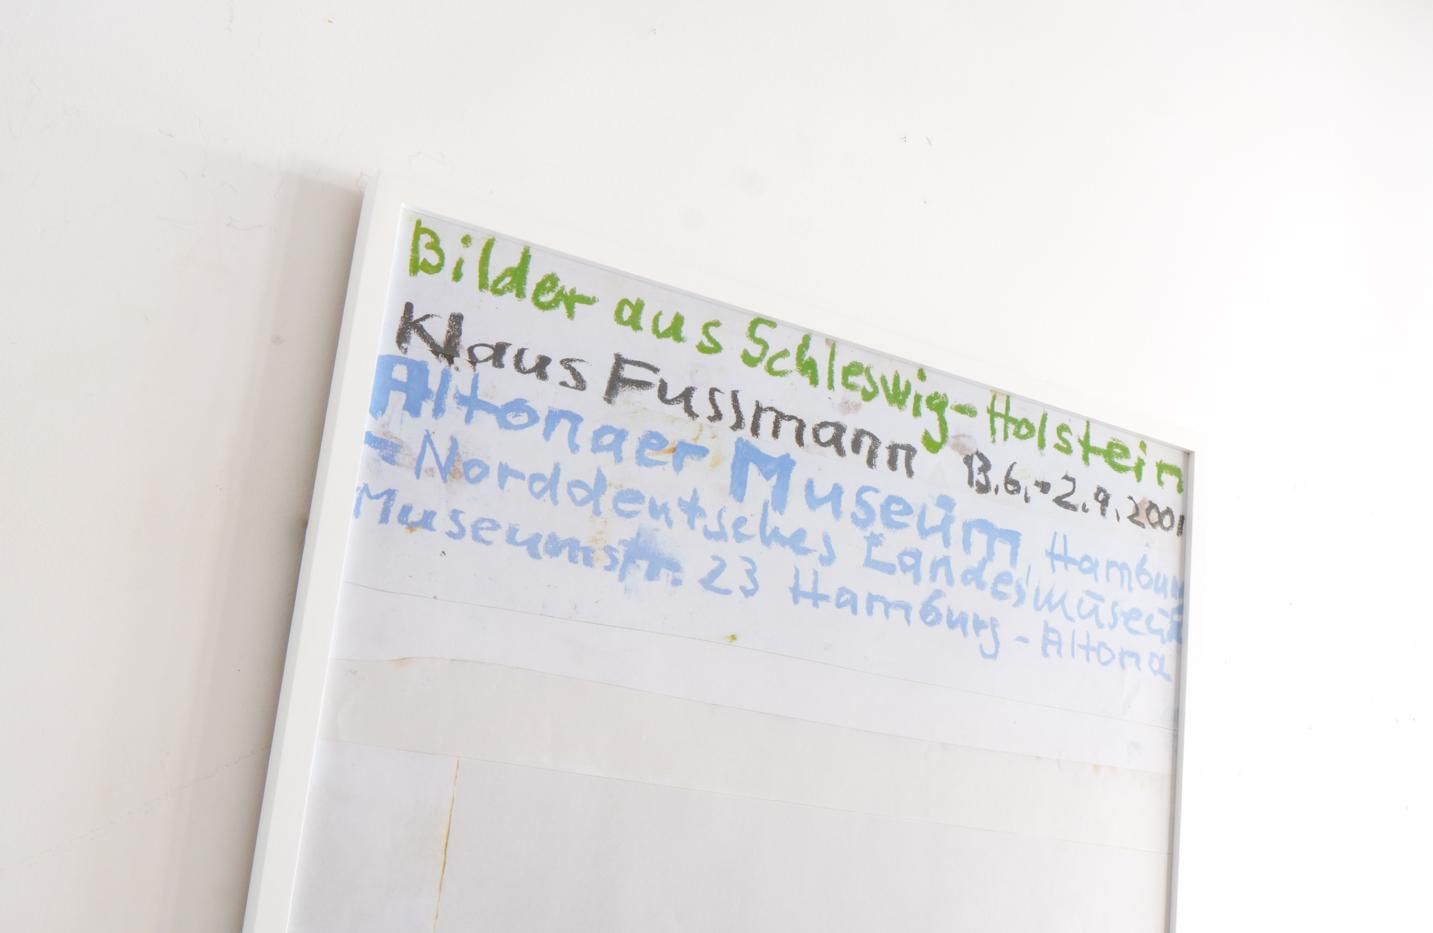 Bilder aus Schleswig-Holstein
Klaus Fussmann 13.6.-2.9.2001
Altonaer Museum, Hamburg
= Norddeutsches Landesmuseum
Museumstr. 23 Hamburg-Altona